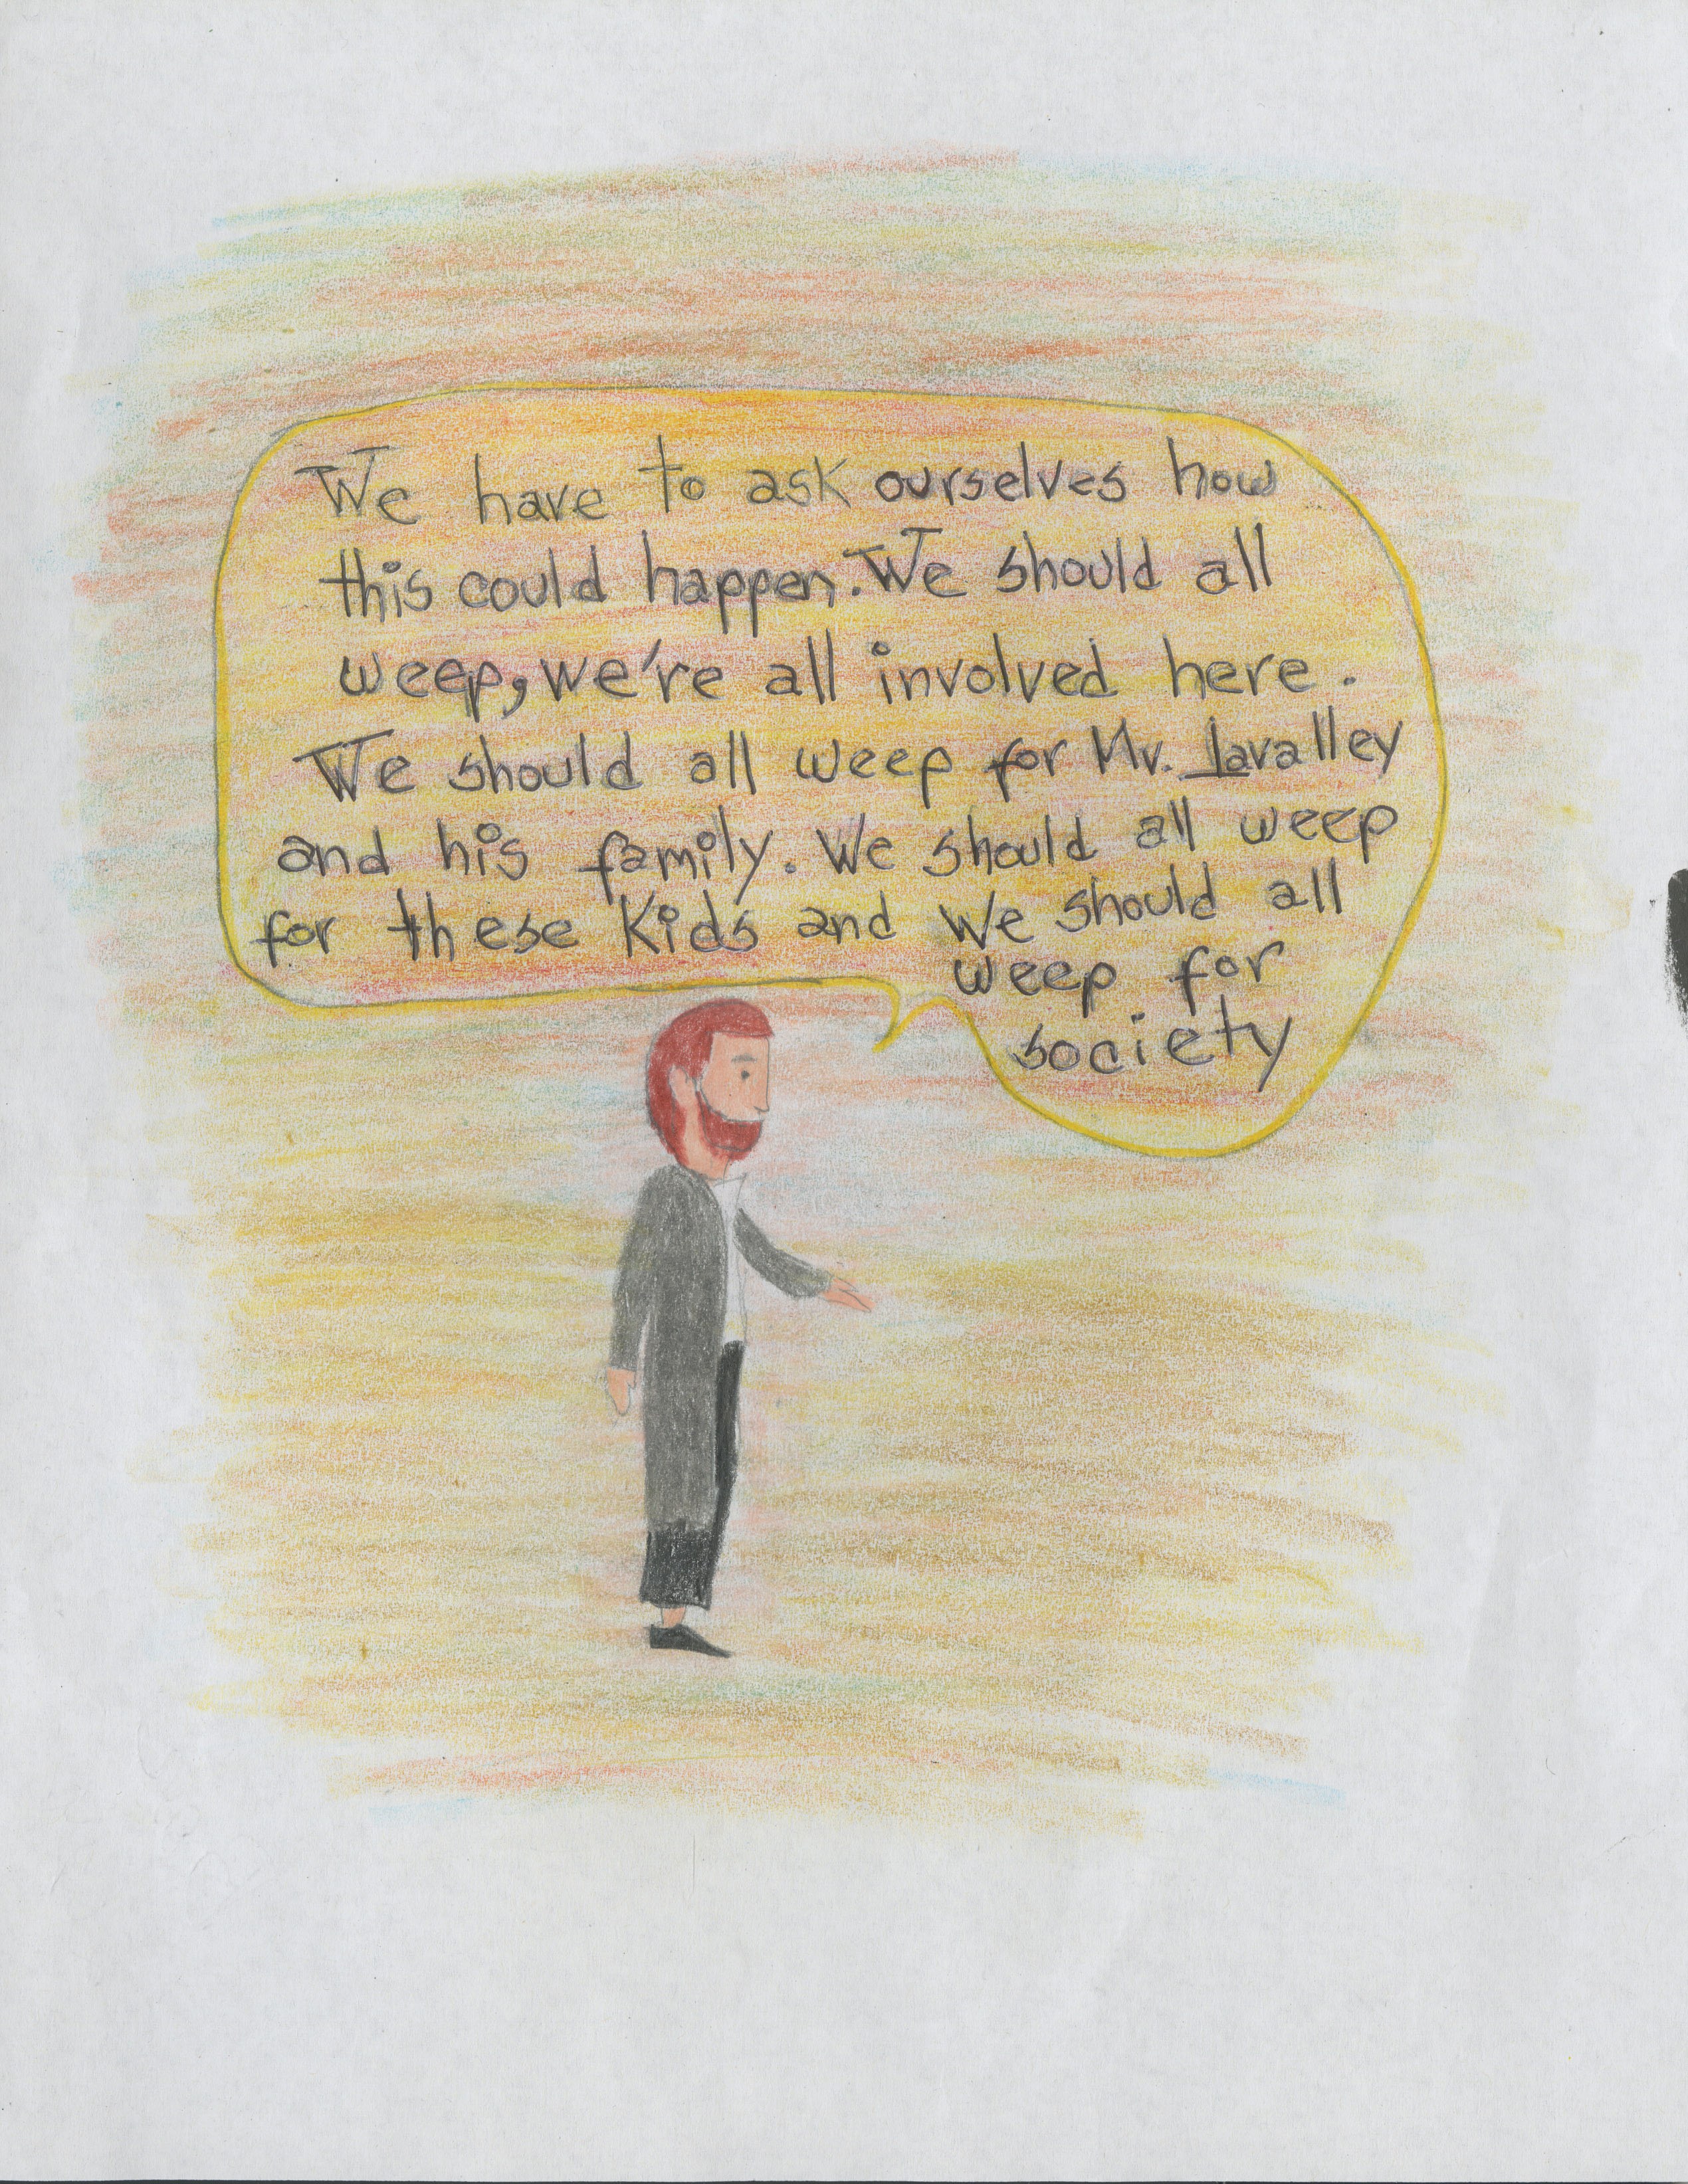 We have to ask ourselves how
this could happen. We should all
weep, we're all involved here.
We should all weep for Mr. Lavalley
and his family. We should all weep
for these Kids and We should all
weep for
society